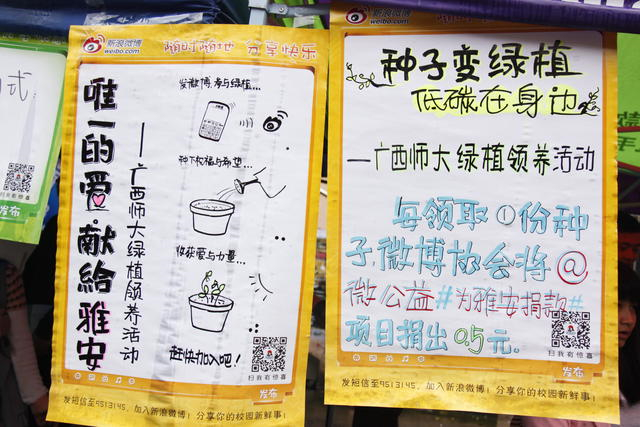 式
扫我有惊喜
发布
新浪微博
weibo.com
随时随地 分享快乐
唯一的爱·献给雅安
——广西师大绿植领养活动
发微博,参与绿植...
种下祝福与希望...
收获爱与力量...
赶快加入吧!
扫我有惊喜
发布
发短信至9513145,加入新浪微博!分享你的校园新鲜事!
新浪微博
weibo.com
随时随地 分享快乐
种子变绿植
低碳在身边
—广西师大绿植领养活动
每领取①份种
子,微博故会将@
微公益#为雅安捐款#
项目捐出0.5元。
扫我有惊喜
发布
发短信至9513145,加入新浪微博!分享你的校园新鲜事!